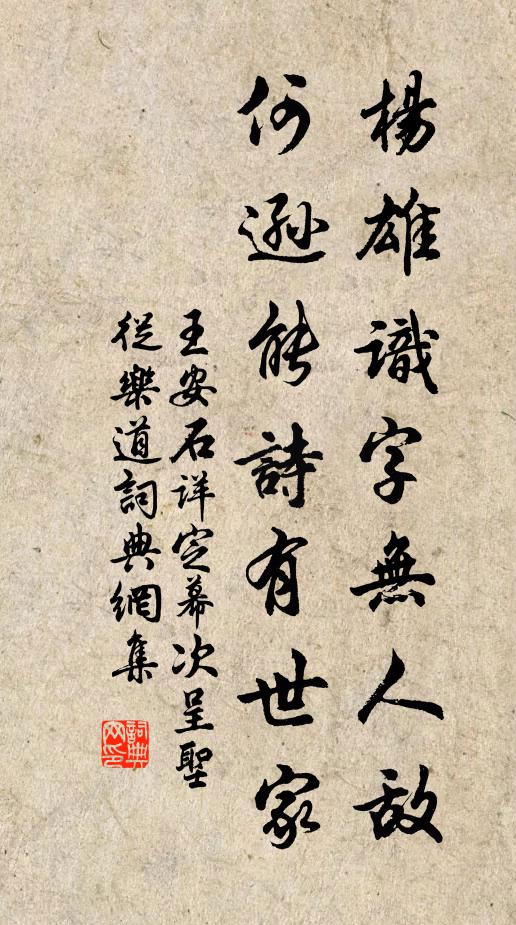 楊雄識字無人敵
何遜能詩有世家
王安石詳定幕次呈聖
從樂道詞典網集
詞典網印